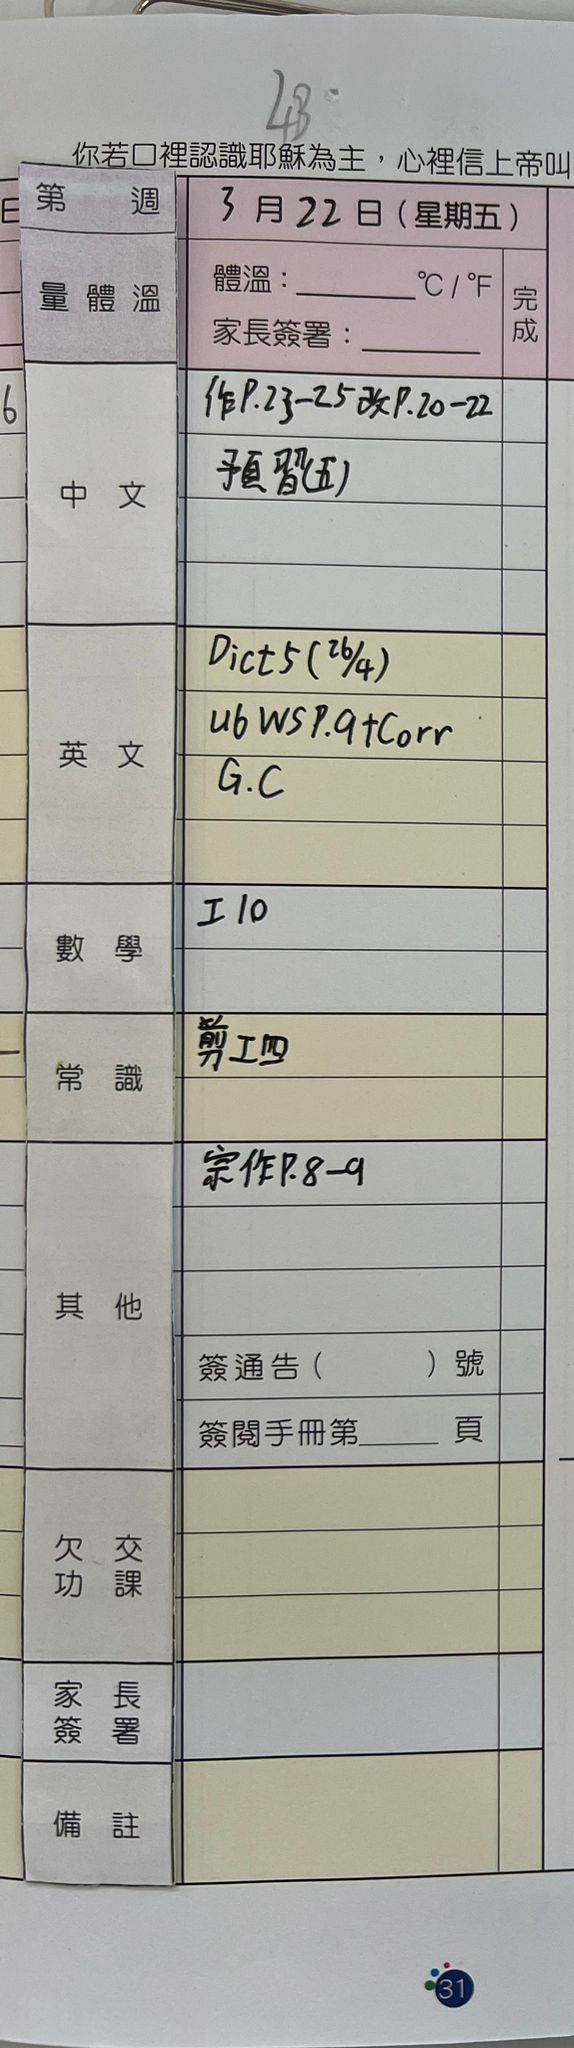 43
你若口裡認識耶穌為主，心裡信上帝叫
日
第 週
3月22日（星期五）
量體溫
體溫：______℃/℉
家長簽署：______
完成
6
中文
作P.23-25改P.20-22
預習(五)
英文
Dict5(26/4)
U6 WS P.9+Corr
G.C
數學
工10
常識
剪工四
其他
宗作P.8-9
簽通告（ ）號
簽閱手冊第_____頁
欠交
功課
家長
簽署
備註
31